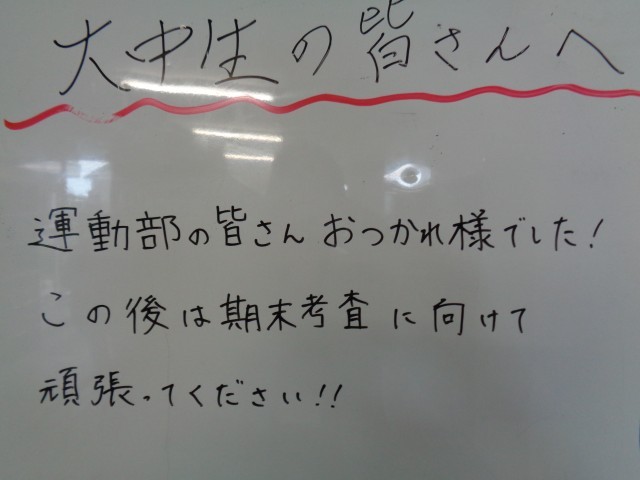 大中生の皆さんへ
運動部の皆さんおつかれ様でした!
この後は期末考査に向けて
頑張ってください!!